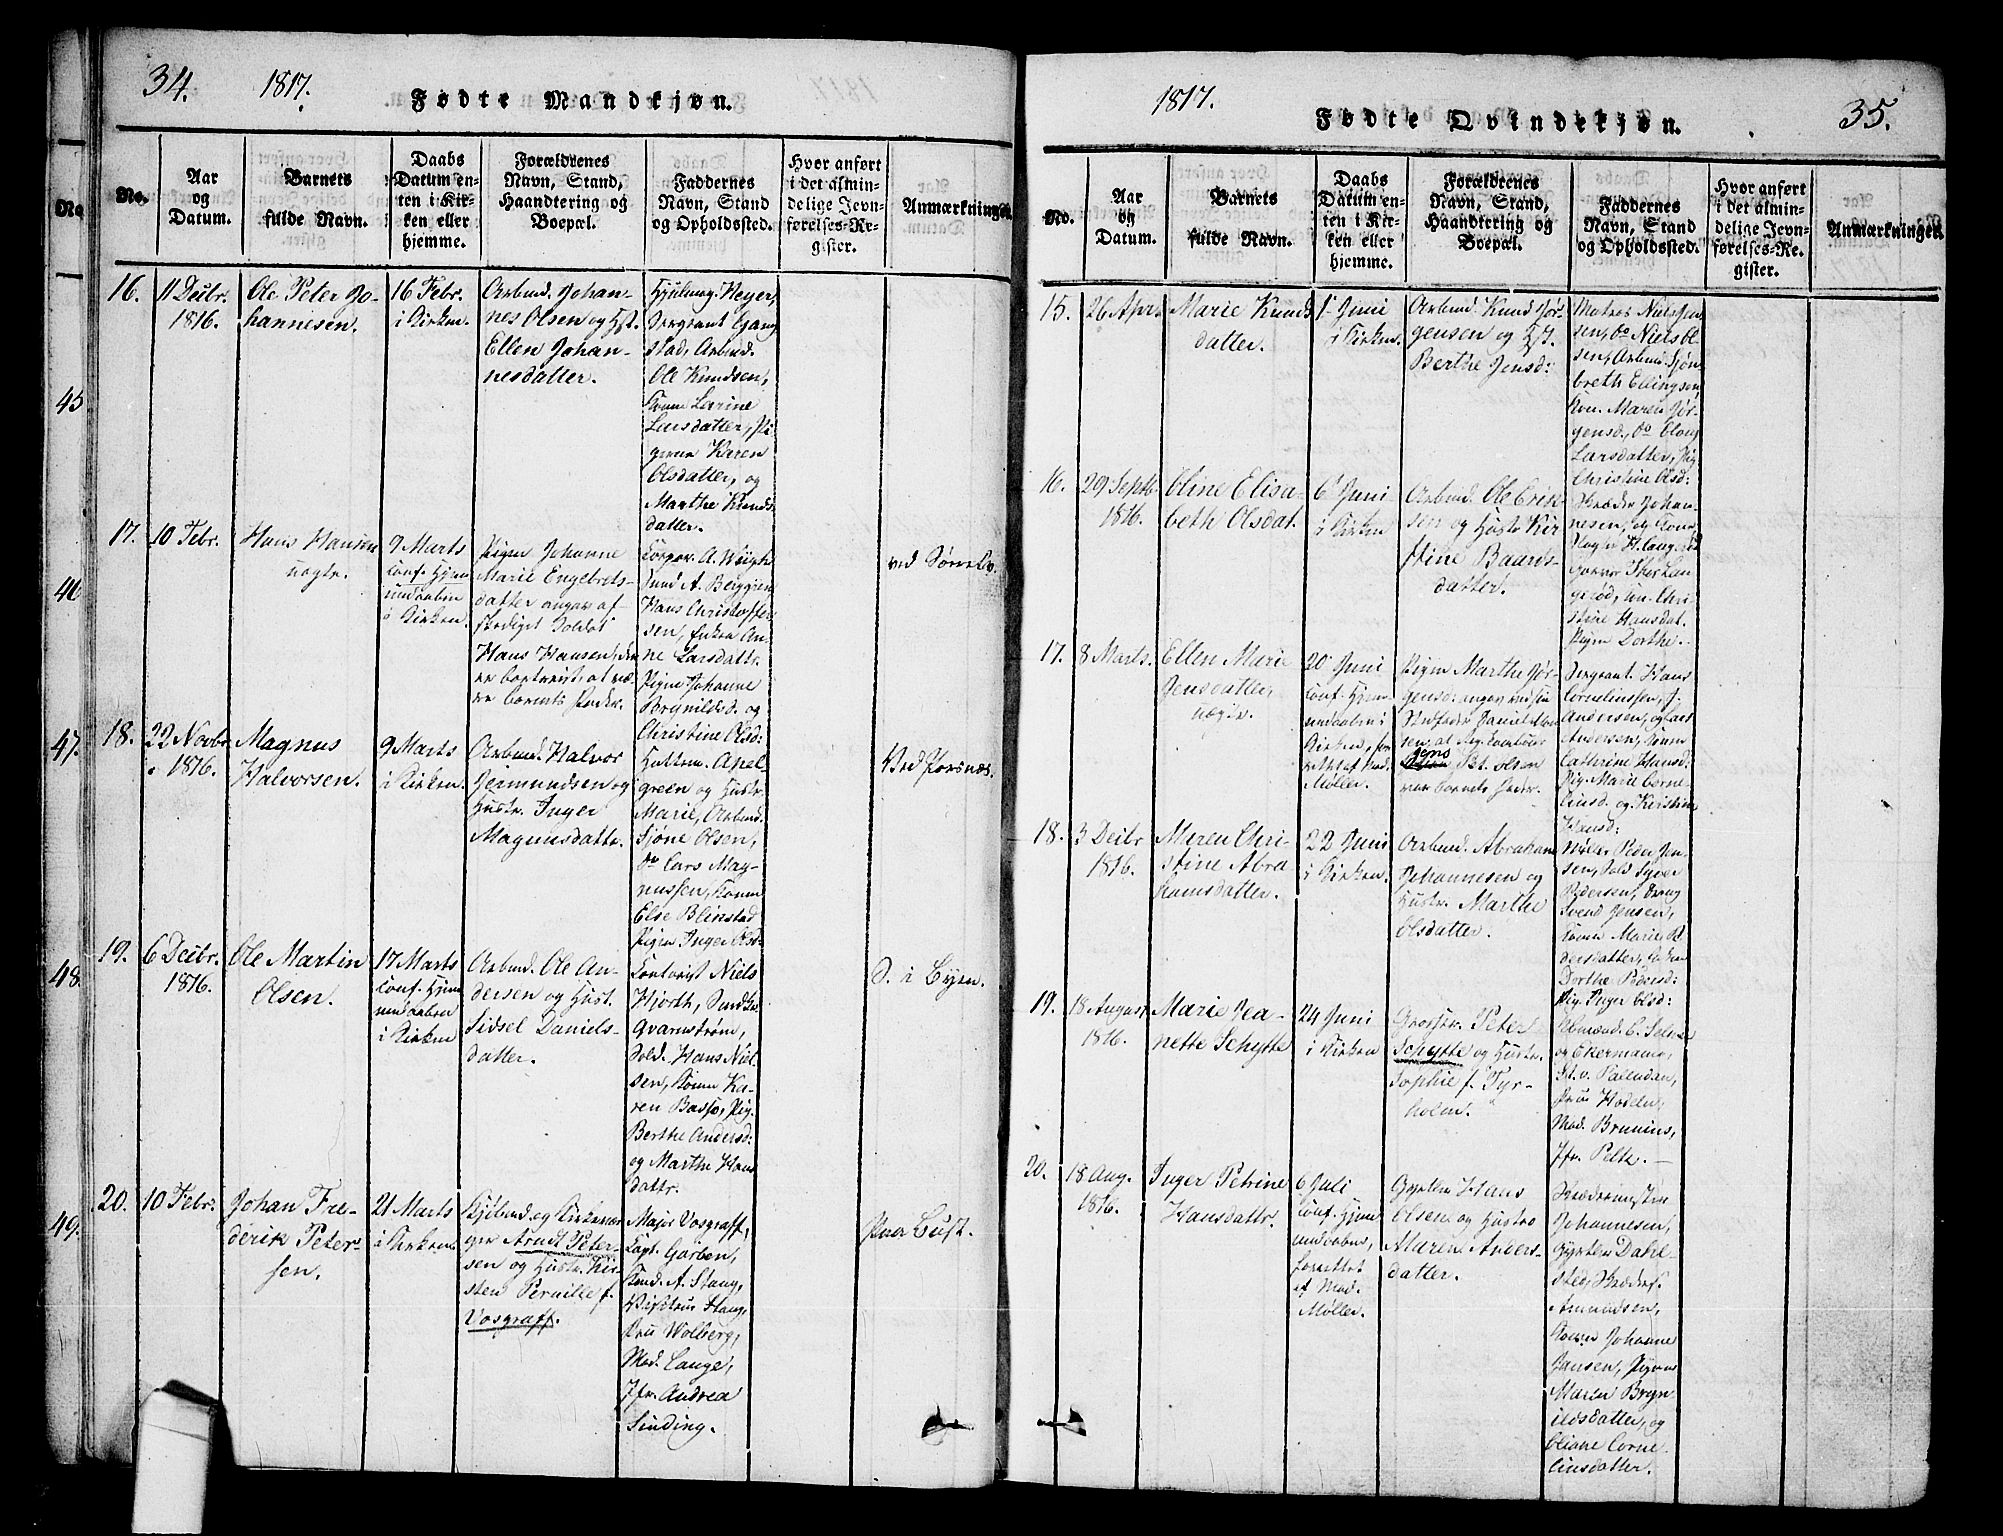 34.
1817.
Fødte Mandkjøn.
No.
Aar
og
Datum.
Barnets
fulde Navn.
Daabs
Datum en-
ten i Kir-
ken eller
hjemme.
Forældrenes
Navn, Stand,
Haandtering og
Boepæl.
Faddernes
Navn, Stand
og Opholdssted.
Hvor anført
i det almin-
delige Jevn-
førelses-Re-
gister.
Anmærkninger.
No
45
46
47.
48.
49.
16.
11 Decbr.
1816.
Ole Peter Jo-
hannesen.
16 Febr.
i Kirken.
Arbmd. Johan-
nes Olsen og Hst.
Ellen Johan-
nesdatter.
Hjulmag. Meyer,
Sergeant Gang-
stad, Arbmd.
Ole Knudsen,
Kone Larine
Larsdatter, Pi-
gerne Karen
Olsdatter, og
Marthe Knuds-
datter.
17.
10 Febr.
Hans Hansen
uegte.
9 Marts
conf. Hjem-
medaaben
i Kirken.
Pigen Johanne
Marie Engebrets-
datter angav af-
skediget Soldat
Hans Hansen,
Barnets Fader.
Hans Christoffer-
sen, Enken An-
ne Larsdattr.
Pigen Johanne
Brynildsd. og
Christine Olsd:
18.
22 Novbr.
1816.
Magnus
Halvorsen.
9 Marts
i Kirken.
Arbmd. Halvor
Germundsen og
Hustr. Inger
Magnusdattr.
Hattem. Apel-
green og Hustr.
Marie, Arbmd.
Sjøne Olsen,
do Lars Mag-
nussen, Kone
Else Blinstad
Pigen Inger Olsd:
19.
6 Decbr.
1816.
Ole Martin
Olsen.
17 Marts
conf. Hjem-
medaaben
i Kirken
Arbmd. Ole An-
dersen og Hust.
Sidsel Daniels-
datter.
Contorist Niels
Hjorth,
Qvarnstrøm,
Sold. Hans Niel-
sen, Kone Ka-
ren Basso, Pig.
Berthe Andersd:
og Marthe Hans
dattr.
S. i Byen.
20.
10 Febr.
Johan Fre-
derik Peter-
sen.
21 Marts
i Kirken
Kjøbmd. og
Arndt Peter-
sen og Hustr. Kir-
sten Pernille f.
Vosgraff.
Major Vosgraff,
Capt. Garben,
Kmd. A. Stang,
Stang,
Fru Wolberg,
Mad. Lange,
Jfr. Andrea
Sinding.
1817.
Fødte Qvindekjøn.
35.
No.
Aar
og
Datum.
Barnets
fulde Navn.
Daabs
Datum en-
ten i Kir-
ken eller
hjemme.
Forældrenes
Navn, Stand,
Haandtering og
Boepæl.
Faddernes
Navn, Stand
og Opholdssted.
Hvor anført
i det almin-
delige Jevn-
førelses-Re-
gister.
Anmærkninger.
15.
26 April
Marie Knuds
datter.
1 Juni
i Kirken.
Arbmd. Knud Jør-
gensen og Hst.
Berthe Jensd:
Matros Niels Jen-
sen, do Niels Ol-
sen, Arbmd. Sjøn-
Ellingsen,
Kon. Maren Jør-
gensd., do
Larsdatter, Pig.
Christine Olsd:
16.
29 Septb.
1816.
Oline Elisa-
beth Olsdat.
6 Juni
i Kirken
Arbmd. Ole Erik-
sen og Hustr. Kir-
stine Baards-
datter.
Skræder Johan-
nesen,
Chri-
stine Hansdat.
Pigen Dorthe.
17.
8 Marts.
Ellen Marie
Jensdatter,
uegte.
20 Juni
conf. Hjem-
medaaben i
Kirken,
Møller.
Pigen Marthe Jør-
gensd: angav
Jens
Olsen
var Barnets Fader.
Sergeant Hans
Corneliussen,
Andersen, og Lars
Andersen, Kone
Cathrine Hansd:
Pig. Marie Corne-
liusd. og Kirstine
Hansd:
18.
3 Decbr
1816.
Maren Chri-
stine Abra-
hamsdatter.
22 Juni
i Kirken.
Arbmd. Abraham
Johannesen og
Hustr. Marthe
Olsdatter.
Møller Peder Jen-
sen, Sold. Syver
Pedersen, Dreng
Svend Jensen,
Kone Marie P-
dersdatter,
Dorthe Pedersd:
Pig. Inger Olsd:
19.
18 August
1816.
Marie Jea-
nette Schytte
24 Juni
i Kirken
Grosser. Peter
Schytte og Hustr.
Sophie f. Tyr-
holm.
og Ekermann,
Pt. v. Palludan,
Fru Hodeln,
Mad. Brunius,
Jfr. Peltz.
20.
18 Aug.
1816.
Inger Petrine
Hansdattr.
6 Juli
conf. Hjem-
medaaben,
forrettet
af Mad.
Møller.
Gjørtler Hans
Olsen og Hustro
Maren Anders-
datter.
Johannesen,
Gjørtler Dahl-
sted, Skrædersv.
Amundsen,
Konen Johanne
Jansen, Pigen
Maren Bryn-
ildsdatter, og
Oliane Corne-
liusdatter.